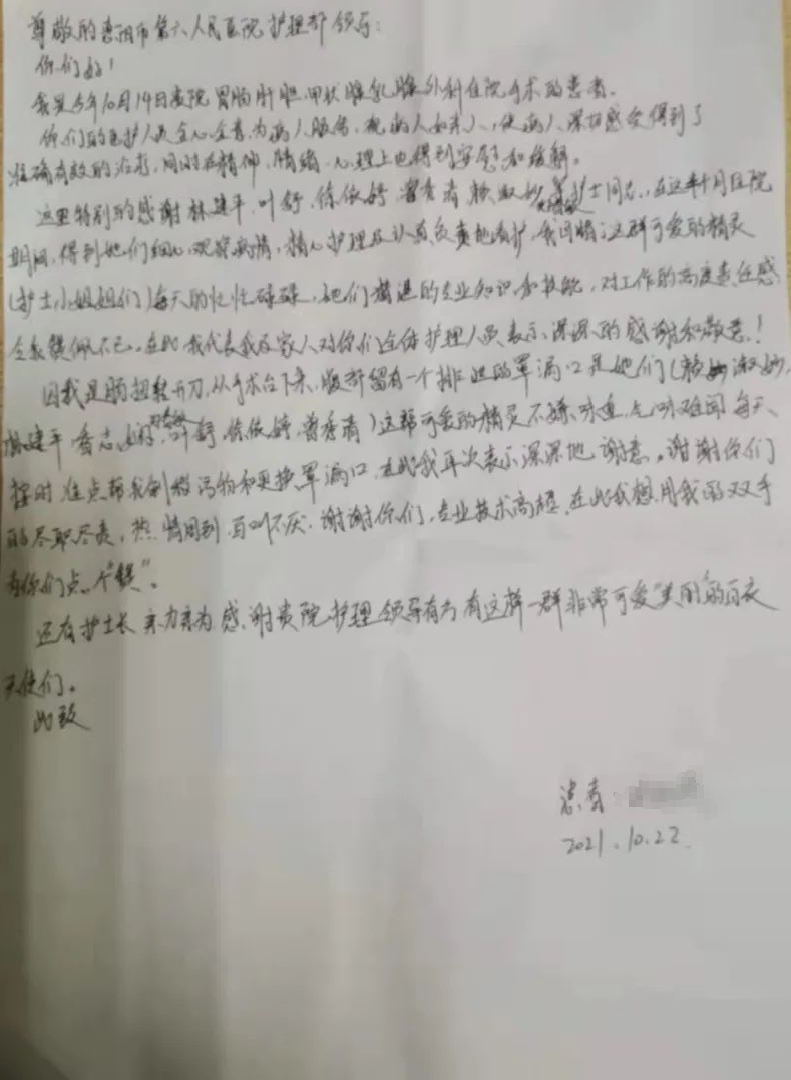 尊敬的惠阳市第六人民医院护理部领导:
你们好!
我是今年10月14日贵院胃肠肝胆甲状腺乳腺外科住院手术的患者。
你们的医护人员全心全意为病人服务,视病人如亲人,使病人深切感受得到了
准确有效的治疗,同时在精神、情绪、心理上也得到安慰和缓解。
这里特别的感谢林建平、叶舒、徐依婷、曾秀清、赖淑妙等护士同志,在这半个月住院
期间,得到她们细心观察病情,精心护理及认真负责地看护,我同情这群可爱的精灵
(护士小姐姐们)每天的忙忙碌碌,她们精湛的专业知识和技能,对工作的高度责任感
令我钦佩不已。在此我代表我及家人对你们全体护理人员表示深深的感谢和敬意!
因我是肠扭转开刀,从手术台下来,腹部留有一个排 的军漏口是她们(赖淑妙,
林建平 叶舒,徐依婷,曾秀清)这帮可爱的精灵不嫌味道,气味难闻每天、
按时准点帮我倒 污物和更换军漏口,在此我再次表示深深地谢意。谢谢你们
的尽职尽责,热情周到,百叫不厌,谢谢你们,专业技术高超,在此我想用我的双手
为你们点个"赞"。
还有护士长亲力亲为,感谢贵院护理领导有方有这样一群非常可爱"美丽"的白衣
天使们。
此致
患者:
2021.10.22